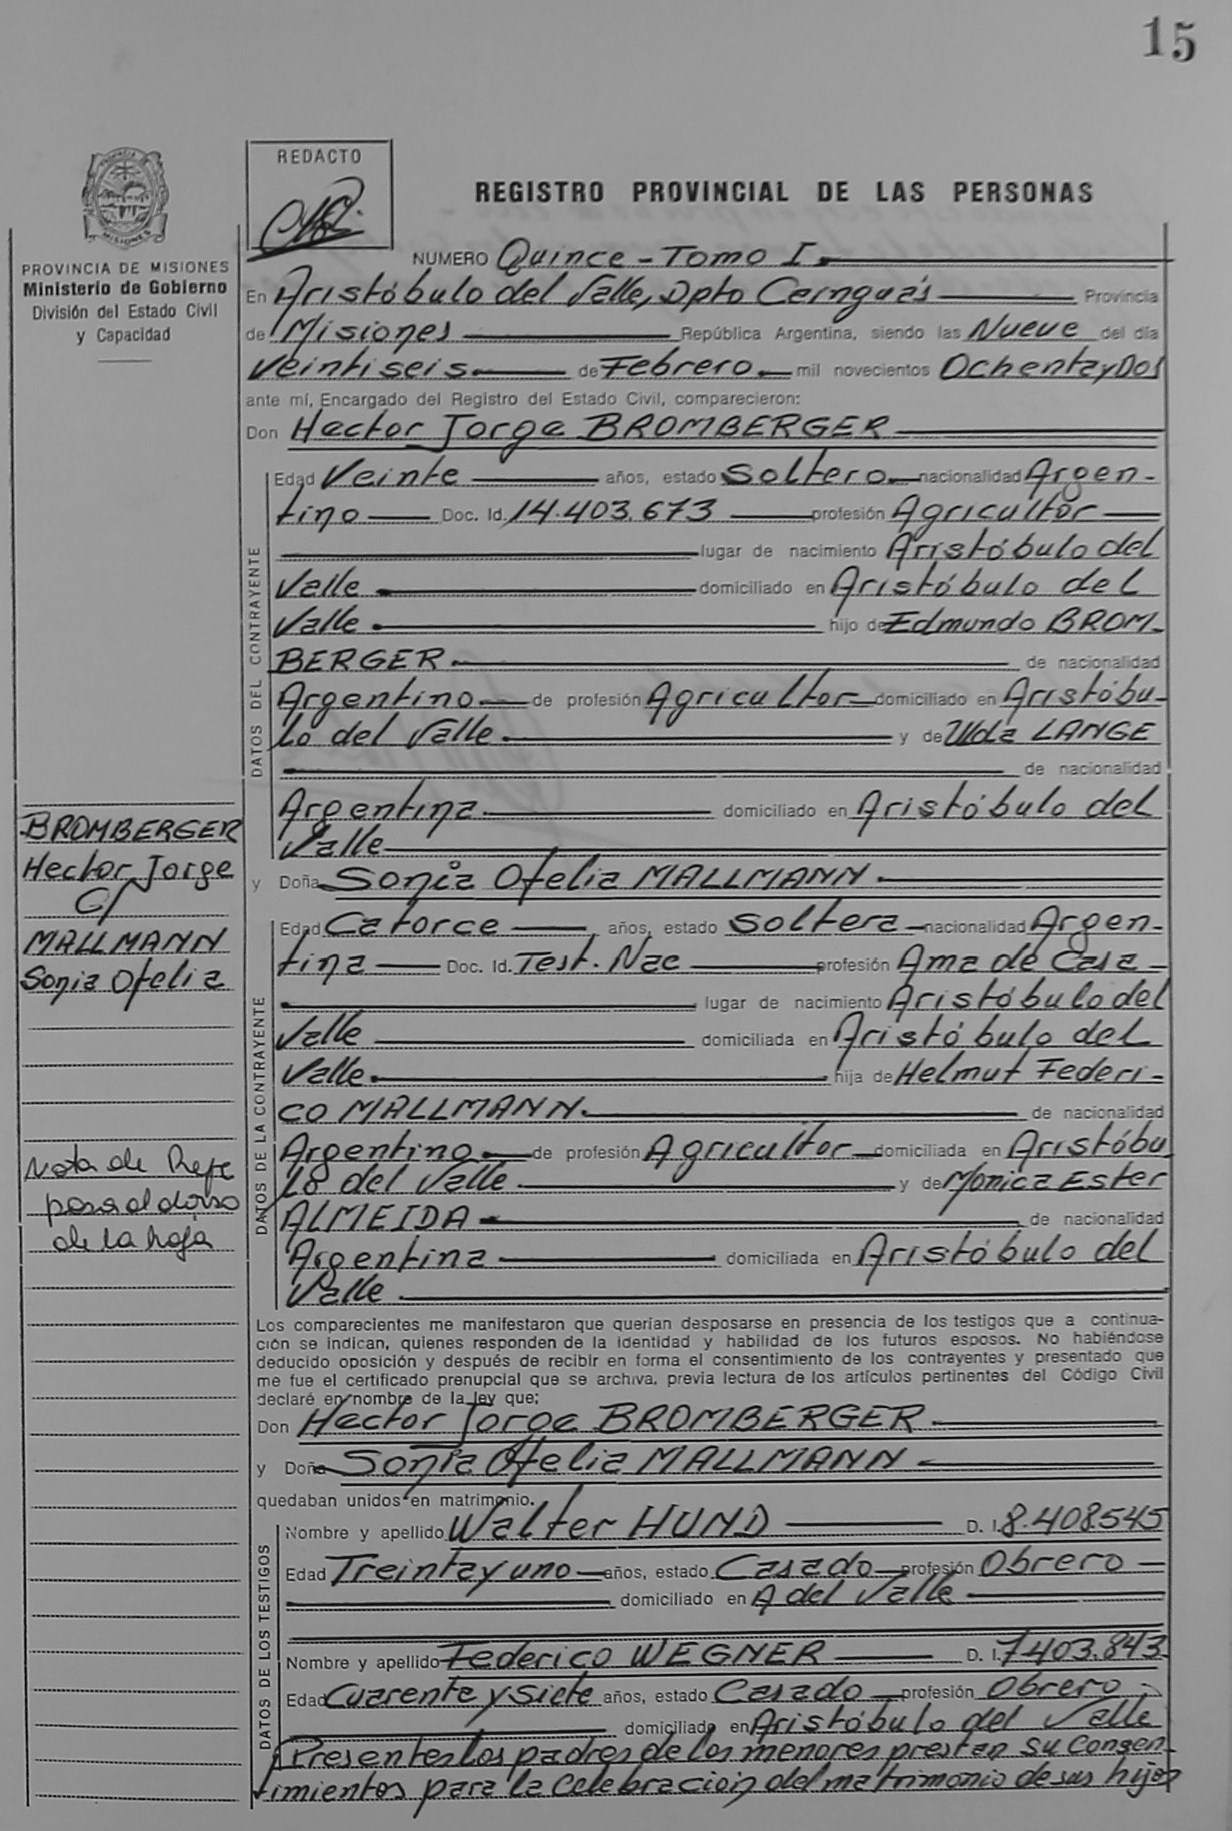 15
REDACTO
REGISTRO PROVINCIAL DE LAS PERSONAS
PROVINCIA DE MISIONES
Ministerio de Gobierno
División del Estado Civil
y Capacidad
NUMERO Quince - Tomo I
En Aristóbulo del Valle, Dpto Cainguás Provincia
de Misiones República Argentina, siendo las Nueve del día
Veintiseis de Febrero mil novecientos Ochenta y Dos
ante mí, Encargado del Registro del Estado Civil, comparecieron:
Don Hector Jorge BROMBERGER
DATOS DEL CONTRAYENTE
Edad Veinte años, estado Soltero nacionalidad Argen-
tino Doc. Id. 14.403.673 profesión Agricultor
lugar de nacimiento Aristóbulo del
Valle domiciliado en Aristóbulo del
Valle hijo de Edmundo BROM-
BERGER de nacionalidad
Argentino de profesión Agricultor domiciliado en Aristóbu-
lo del Valle y de Ulda LANGE
de nacionalidad
Argentina domiciliado en Aristóbulo del
Valle
y Doña Sonia Ofelia MALLMANN
BROMBERGER
Hector Jorge
C/
MALLMANN
Sonia Ofelia
Nota de Refe
pasa al dorso
de la hoja
DATOS DE LA CONTRAYENTE
Edad Catorce años, estado Soltera nacionalidad Argen-
tina Doc. Id. Test. Nac profesión Ama de Casa
lugar de nacimiento Aristóbulo del
Valle domiciliada en Aristóbulo del
Valle hija de Helmut Federi-
co MALLMANN de nacionalidad
Argentino de profesión Agricultor domiciliada en Aristóbu
lo del Valle y de Monica Ester
ALMEIDA de nacionalidad
Argentina domiciliada en Aristóbulo del
Valle
Los comparecientes me manifestaron que querían desposarse en presencia de los testigos que a continua-
ción se indican, quienes responden de la identidad y habilidad de los futuros esposos. No habiéndose
deducido oposición y después de recibir en forma el consentimiento de los contrayentes y presentado que
me fue el certificado prenupcial que se archiva, previa lectura de los artículos pertinentes del Código Civil
declaré en nombre de la ley que;
Don Hector Jorge BROMBERGER
y Doña Sonia Ofelia MALLMANN
quedaban unidos en matrimonio.
DATOS DE LOS TESTIGOS
Nombre y apellido Walter HUND D. I. 8.408545
Edad Treinta y uno años, estado Casado profesión Obrero
domiciliado en A del Valle
Nombre y apellido Federico WEGNER D. I. 7403.843
Edad Cuarenta y Siete años, estado Casado profesión Obrero
domiciliado en Aristóbulo del Valle
Presentes los padres de los menores prestan su Concen-
timientos para la celebracioin del matrimonio de sus hijos